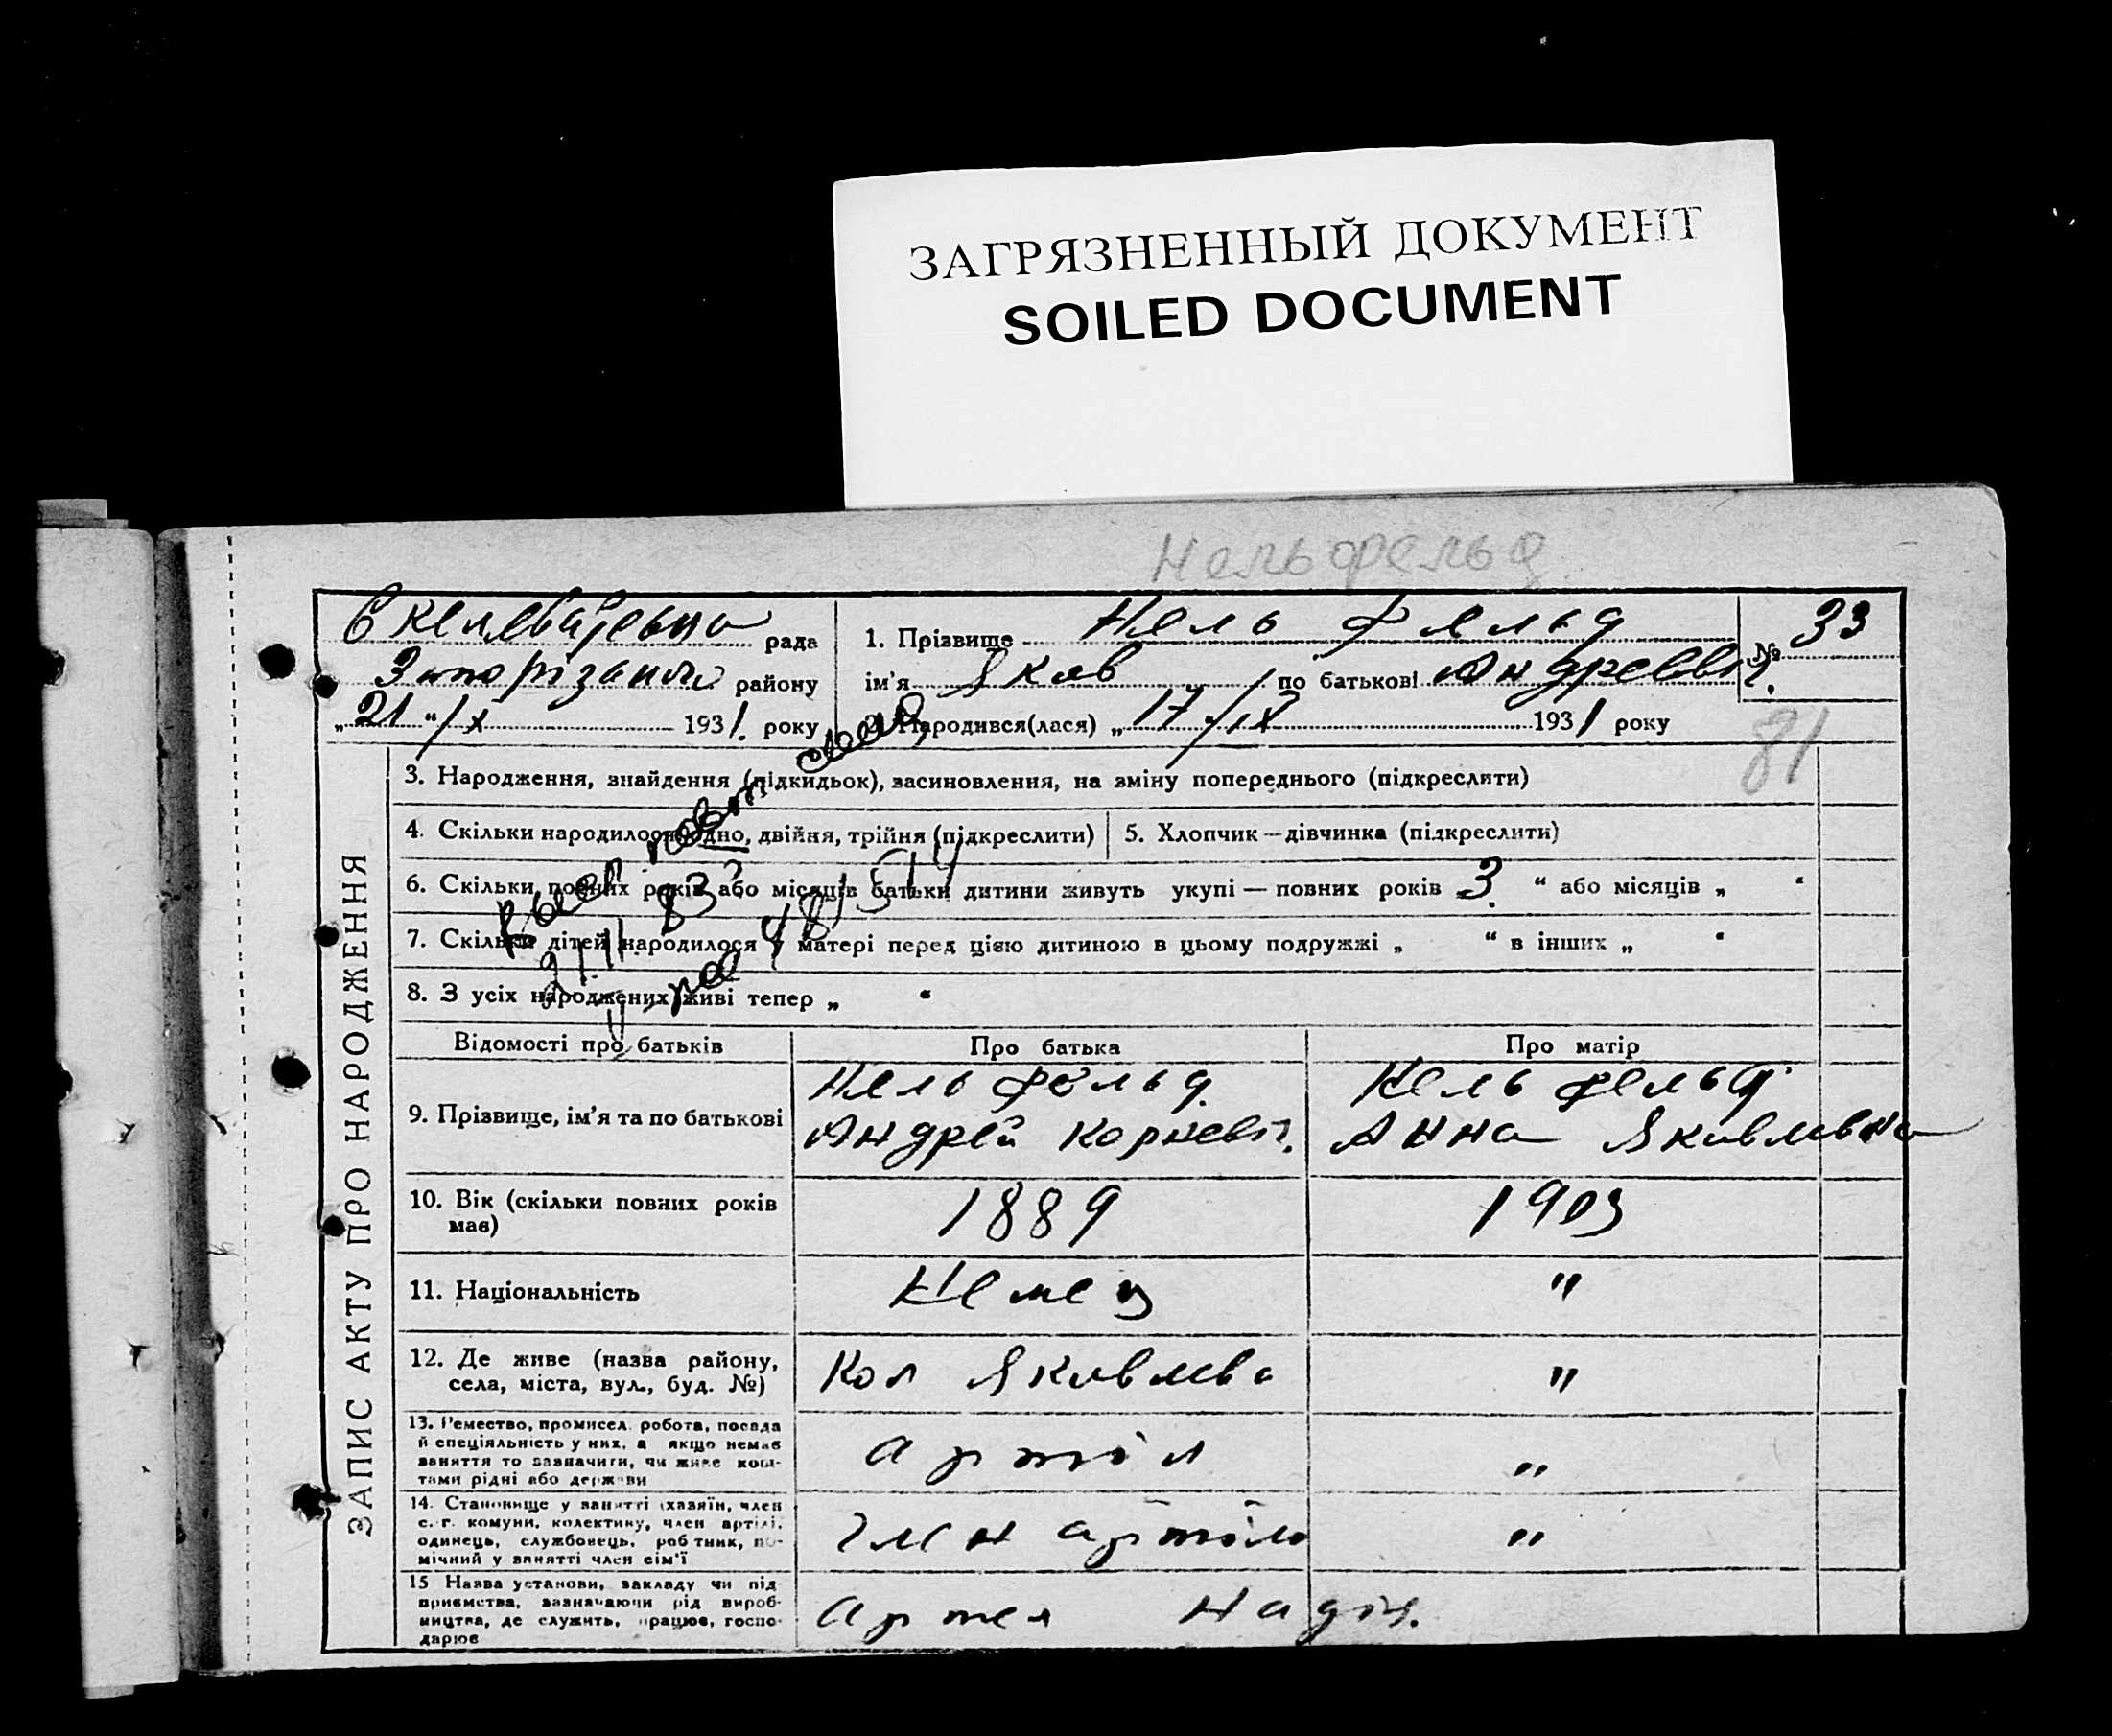 ЗАГРЯЗНЕННЫЙ ДОКУМЕНТ
SOILED DOCUMENT
Нельфельд
рада
району
„21“/X 1931. року
1. Прізвище Нель Фельд
ім'я Яков по батькові Андреевіч.
2. Народився(лася) „17“/IX 1931 року
№ 33
81
ЗАПИС АКТУ ПРО НАРОДЖЕННЯ
3. Народження, знайдення (підкидьок), засиновлення, на зміну попереднього (підкреслити)
4. Скільки народилося одно, двійня, трійня (підкреслити)
5. Хлопчик—дівчинка (підкреслити)
6. Скільки повних років або місяців батьки дитини живуть укупі — повних років 3. “ або місяців „ “
7. Скільки дітей народилося у матері перед цією дитиною в цьому подружжі „ “ в інших „ “
8. З усіх народжених живі тепер „ “
Відомості про батьків
Про батька
Про матір
9. Прізвище, ім'я та по батькові
Нель Фельд.
Андрей Корневіч.
Нель Фельд
Анна Яковлевна
10. Вік (скільки повних років має)
1889
1903
11. Національність
Немец
"
12. Де живе (назва району,
села, міста, вул., буд. №)
Кол Яковлева
"
13. Ремество, промисел, робота, посада
й спеціяльність у них, а якщо немає
заняття то зазначити, чи живе кош-
тами рідні або держави
артіл
"
14. Становище у занятті (хазяїн, член
с.-г. комуни, колективу, член артілі,
одинець, службовець, робітник, по-
мічний у занятті член сім'ї
член артіли
"
15 Назва установи, закладу чи під-
приємства, зазначаючи рід вироб-
ництва, де служить, працює, госпо-
дарює
артел Надія.